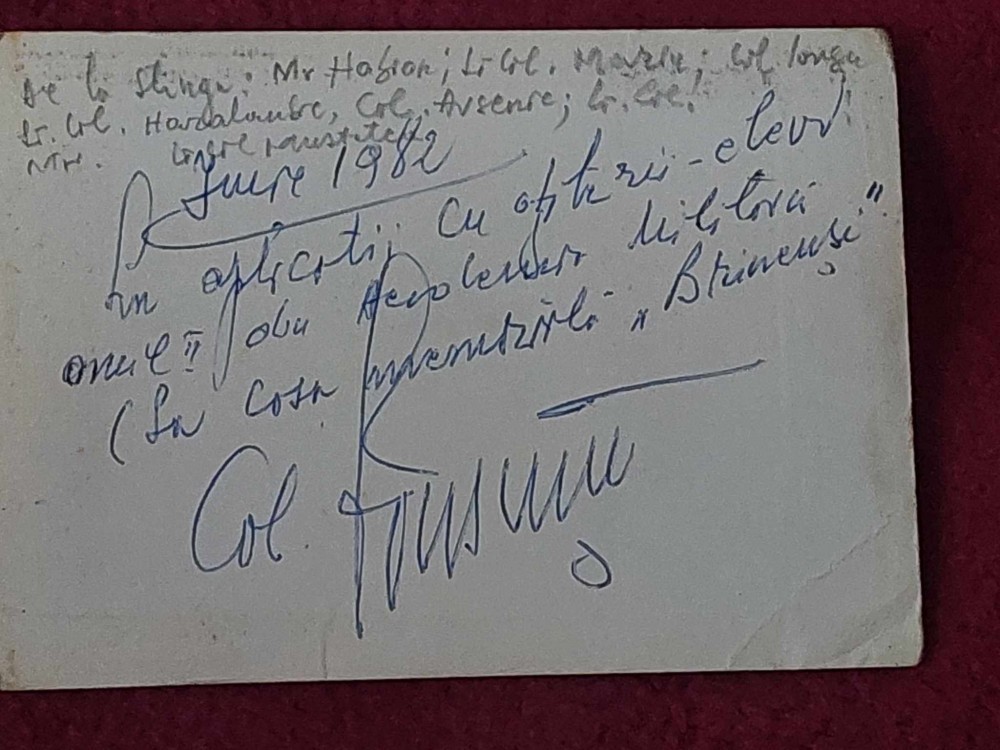 De la stînga: Mr Habian; Lt Col. Marin; Col.
Lt. Col. Haralambie, Col. Arsenie; Lt. Col.
Mr.
Iunie 1982
în aplicații cu ofițerii-elevi
anul II din Academia Militară
(La casa memorială „Brîncuși"
Col.